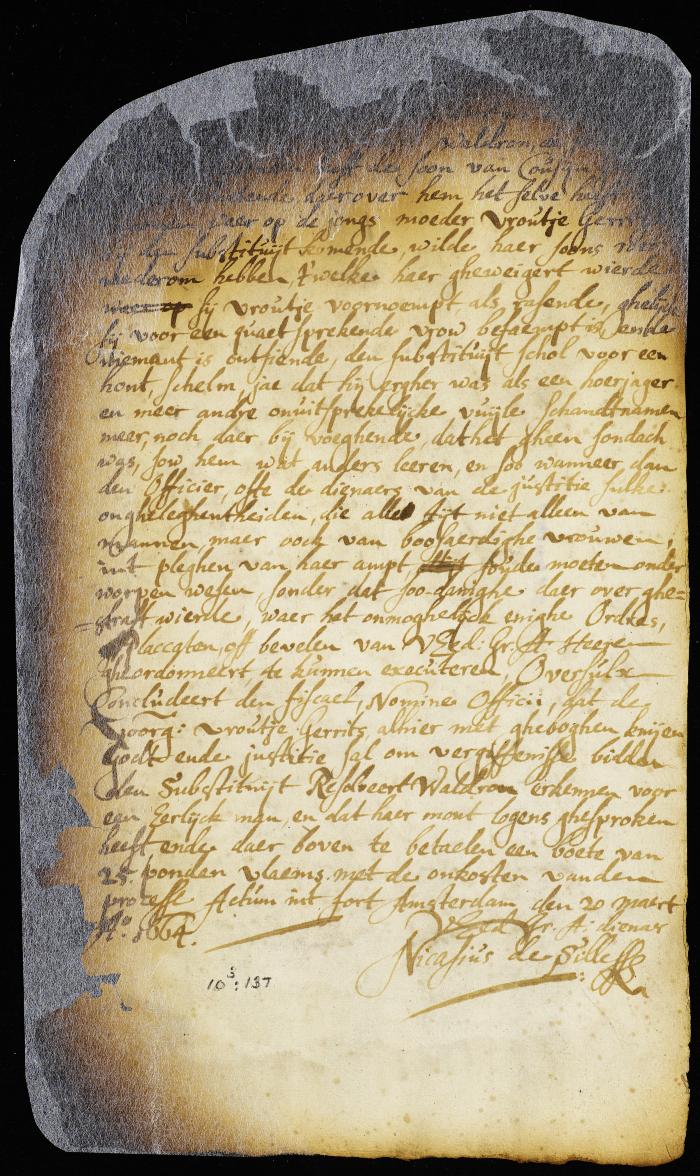 Waldron, en
heeft de soon van Cousyn
ende daer over hem het selve heeft
waer op de jongs moeder vroutje Gerrits
bij den substituijt komende, wilde haer soons
wederom hebben, t'welke haer gheweigert wierde
waer op sij vroutje voornoempt als rasende, ghelijck
sij voor een quaet sprekende vrow befaempt is, ende
niemant is ontsiende, den substituijt schol voor een
hont, schelm, jae dat hij ergher was als een hoerjager
en meer andre onuitsprekelijcke vuijle schandtnamen
meer, noch daer bij voeghende, dat het gheen sondach
was, sow hem wat anders leeren, en soo wanneer dan
den Officier, ofte de dienaers van de justitie sulke
ongheleghentheiden, die alle tijt niet alleen van
mannen, maer oock van boosaerdighe vrouwen,
int pleghen van haer ampt souden moeten onder
worpen wesen, sonder dat soo danighe daer over ghe=
=straft wierde, waer het onmoghelijck enighe Ordres,
Placcaten, off bevelen van VEed: Gr. A. Heeren
gheordonneert te kunnen executeren, Oversulx
Concludeert den fiscael, Nomine Officii, dat de
voorg: Vroutje Gerrits, alhier met gheboghen knijen
Godt ende justitie sal om vergiffenisse bidden
den Substituijt Resolveert Waldron erkennen voor
een Eerlijck man, en dat haer mont logens ghesproken
heeft ende daer boven te betaelen een boete van
25. ponden vlaems met de onkosten van den
processe Actum int fort Amsterdam den 20 maert
A.o 1664.
VEed Gr. A: dienaer
Nicasius de Sille
10 3: 137